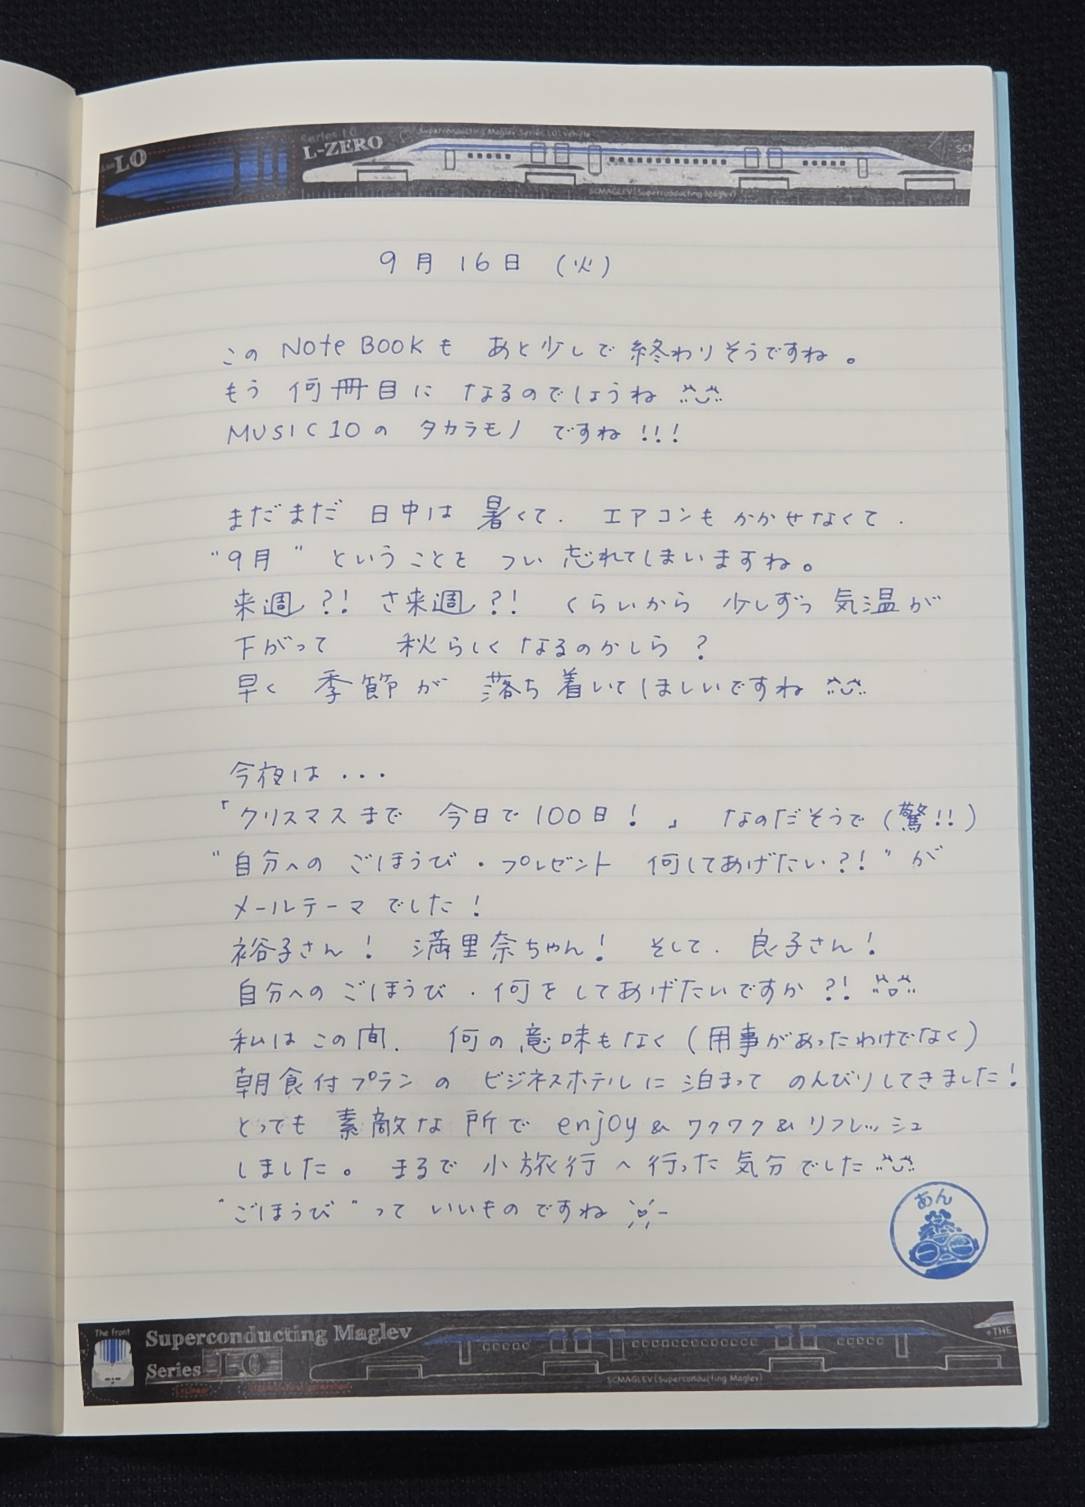 L0
Series L0
L-ZERO
Superconducting Maglev Series L0 vehicle
SCMAGLEV(Superconducting Maglev)
9月16日 (火)
この NOte BOOKも あと少しで終わりそうですね。
もう 何冊目に なるのでしょうね
MUSIC10の タカラモノ ですね!!!
まだまだ 日中は 暑くて. エアコンも かかせなくて.
"9月" ということを つい 忘れてしまいますね。
来週?! さ来週?! くらいから 少しずつ 気温が
下がって 秋らしく なるのかしら?
早く 季節が 落ち着いてほしいですね
今夜は・・・
「クリスマスまで 今日で100日!」 なのだそうで(驚!!)
"自分への ごほうび・プレゼント 何してあげたい?!"が
メールテーマ でした!
裕子さん! 満里奈ちゃん! そして. 良子さん!
自分への ごほうび.何を してあげたいですか?!
私は この間. 何の意味もなく(用事があったわけでなく)
朝食付プラン の ビジネスホテルに 泊まって のんびりしてきました!
とっても 素敵な 所で enjoy & ワクワク & リフレッシュ
しました。 まるで 小旅行へ行った気分でした
"ごほうび"って いいものですね
あん
The front
Superconducting Maglev
Series L0
SCMAGLEV(Superconducting Maglev)
THE